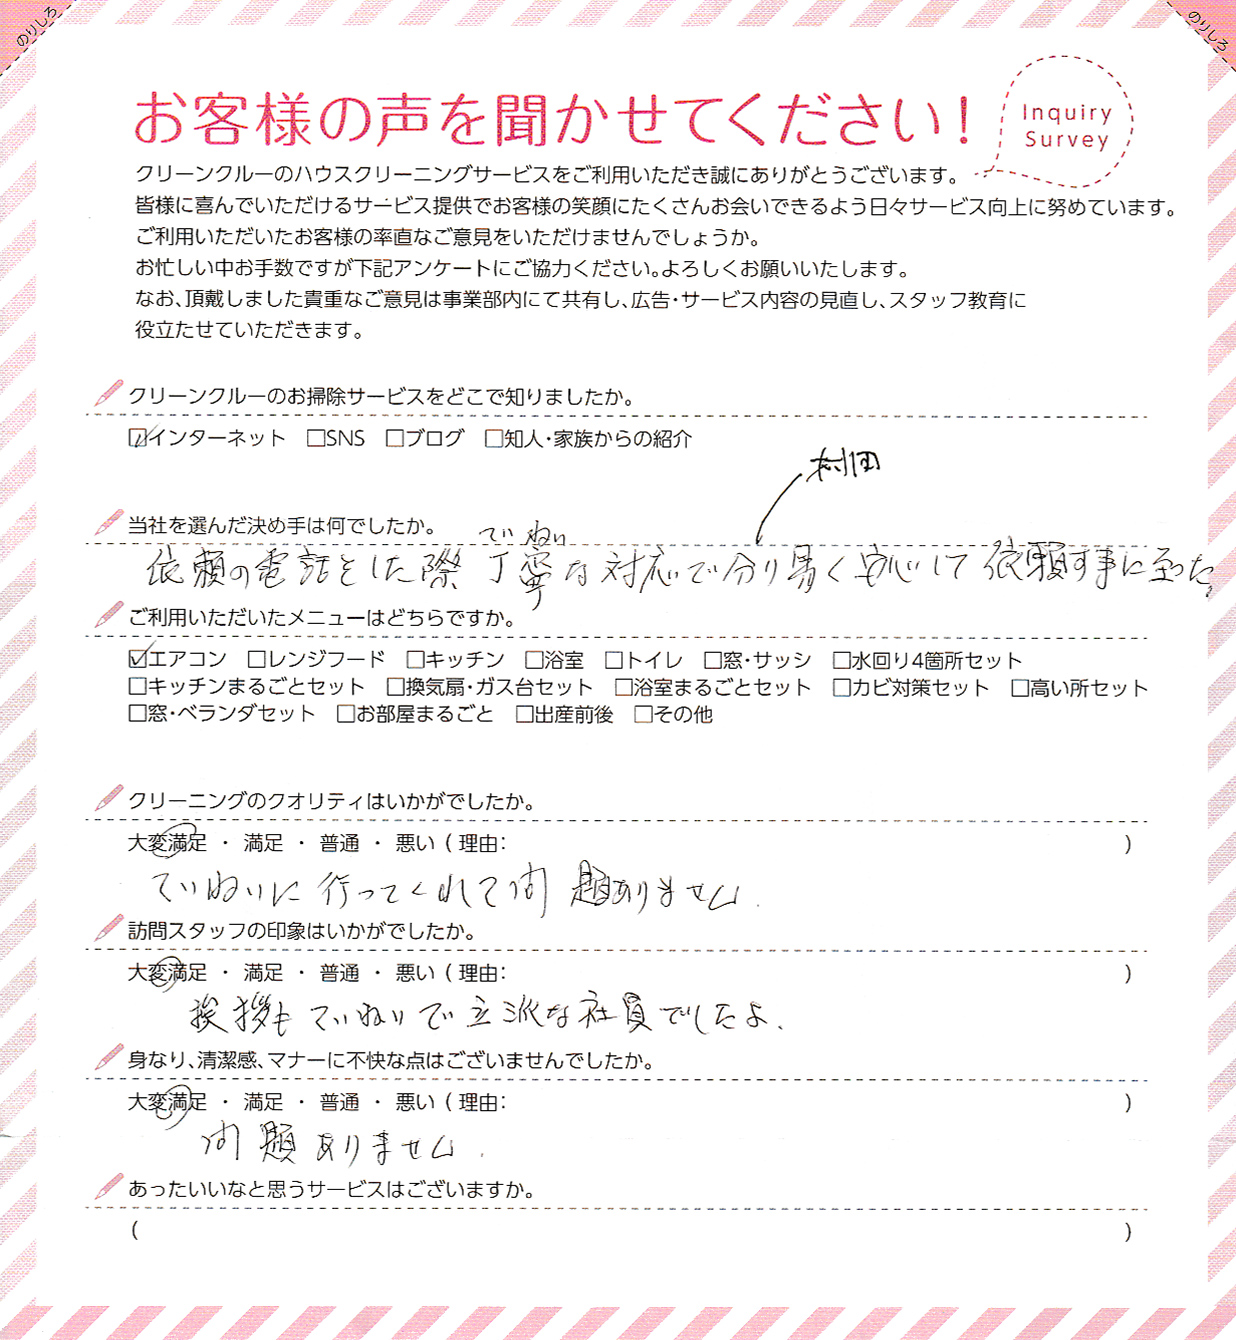 のりしろ
のりしろ
お客様の声を聞かせてください!
Inquiry
Survey
クリーンクルーのハウスクリーニングサービスをご利用いただき誠にありがとうございます。
皆様に喜んでいただけるサービス提供でお客様の笑顔にたくさんお会いできるよう日々サービス向上に努めています。
ご利用いただいたお客様の率直なご意見をいただけませんでしょうか。
お忙しい中お手数ですが下記アンケートにご協力ください。よろしくお願いいたします。
なお、頂戴しました貴重なご意見は事業部内にて共有し、広告・サービス内容の見直し、スタッフ教育に
役立たせていただきます。
クリーンクルーのお掃除サービスをどこで知りましたか。
☑インターネット □SNS □ブログ □知人・家族からの紹介
当社を選んだ決め手は何でしたか。
ていねい
依頼の電話をした際丁寧な対応で分り易く安心して依頼す事に至った。
ご利用いただいたメニューはどちらですか。
☑エアコン □レンジフード □キッチン □浴室 □トイレ □窓・サッシ □水回り4箇所セット
□キッチンまるごとセット □換気扇・ガス台セット □浴室まるごとセット □カビ対策セット □高い所セット
□窓・ベランダセット □お部屋まるごと □出産前後 □その他
クリーニングのクオリティはいかがでしたか。
大変満足 ・ 満足 ・ 普通 ・ 悪い ( 理由: )
ていねいに行ってくれて問題ありません.
訪問スタッフの印象はいかがでしたか。
大変満足 ・ 満足 ・ 普通 ・ 悪い ( 理由: )
挨拶もていねいで立派な社員でしたよ、
身なり、清潔感、マナーに不快な点はございませんでしたか。
大変満足 ・ 満足 ・ 普通 ・ 悪い ( 理由: )
問題ありません.
あったいいなと思うサービスはございますか。
( )